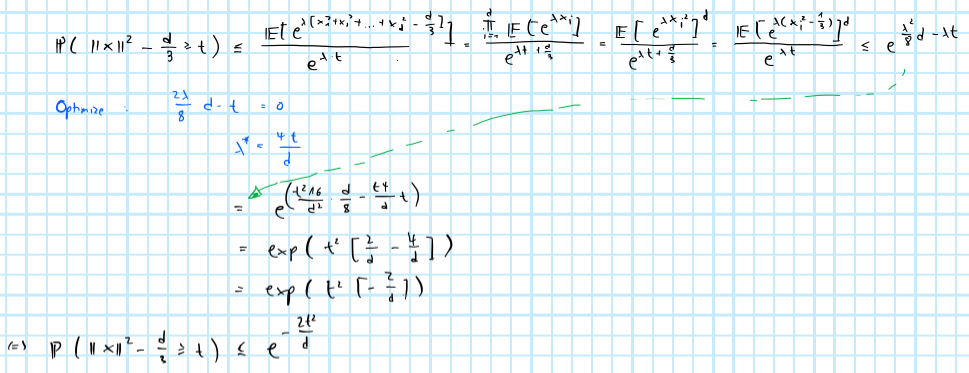 P( ||x||² - d/3 ≥ t) ≤ E[e^{λ[x₁²+x₂²+...+x_d² - d/3]}] / e^{λ·t} = ∏_{i=1}^{d} E[e^{λx_i}] / e^{λt + d/3} = E[e^{λx_i²}]^d / e^{λt + d/3} = E[e^{λ(x_i² - 1/3)}]^d / e^{λt} ≤ e^{λ²/8 d - λt}
Optimize : 2λ/8 d - t = 0
λ* = 4t/d
= e^(t²16/d² · d/8 - t4/d t)
= exp( t² [2/d - 4/d])
= exp( t² [-2/d])
(=) P( ||x||² - d/3 ≥ t) ≤ e^{-2t²/d}